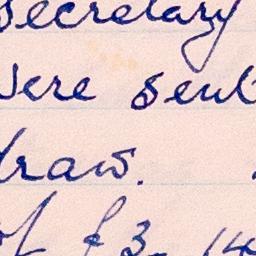 secretary
were sent
draw.
of £3. 14